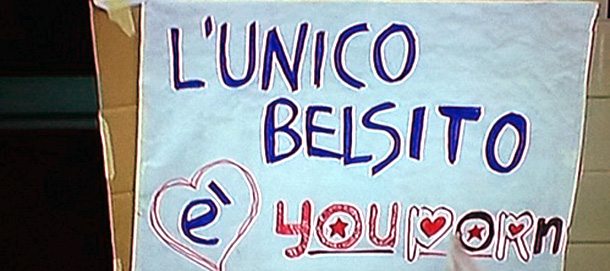 L'UNICO
BELSITO
è youporn